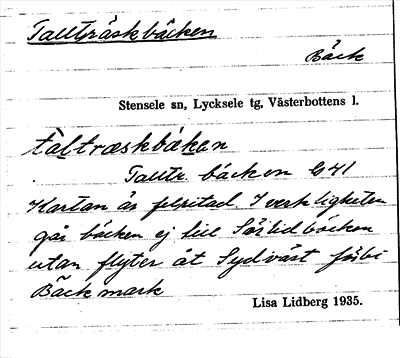 Talltjräskbäcken
Bäck
Stensele sn, Lycksele tg, Västerbottens l.
taltræskbäkan
Talltr. bäcken G 41
Kartan är felritad. I verkligheten
går bäcken ej till Sörlidbäcken
utan flyter åt Sydväst förbi
Bäckmark
Lisa Lidberg 1935.